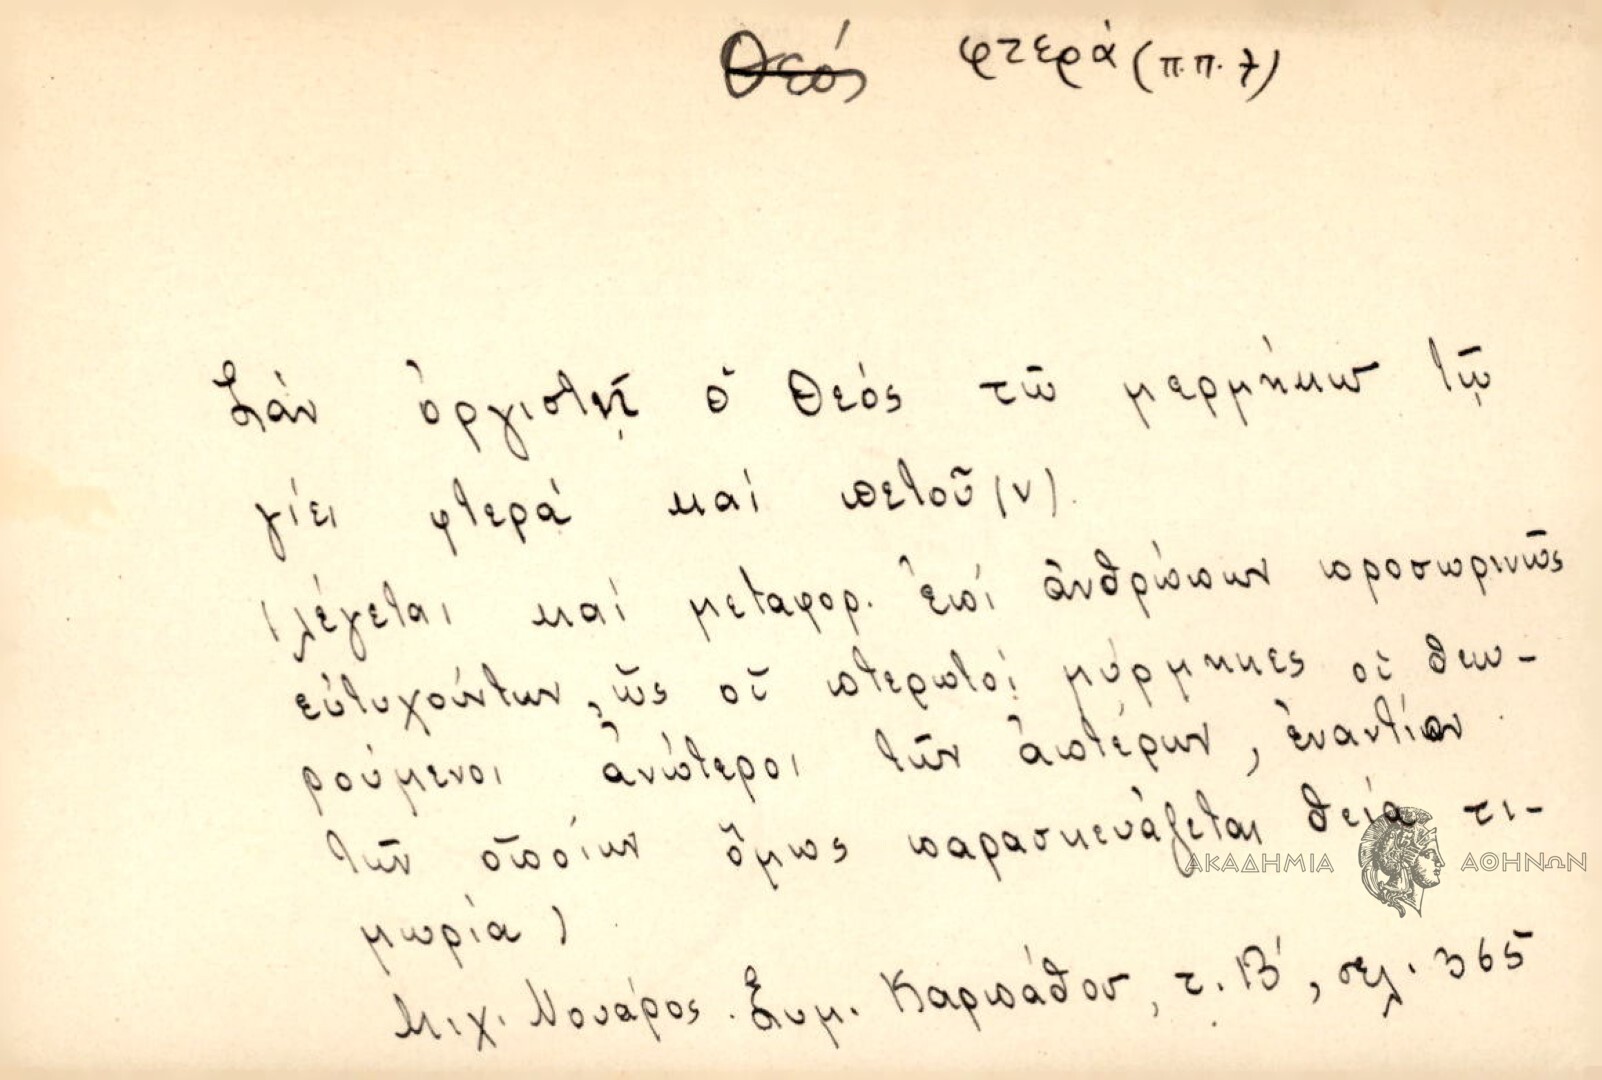 Θεός φτερά (π.π. 7)
Σὰν ὀργιστῇ ὁ Θεός τῶ μερμήκω τῷ
γίει φτερά καί πετοῦ(ν).
(λέγεται καί μεταφορ. ἐπί ἀνθρώπων προσωρινῶς
εὐτυχούντων, ὡς οἱ πτερωτοί μύρμηκες οἱ θεω-
ρούμενοι ἀνώτεροι τῶν ἀπτέρων, ἐναντίον
τῶν ὁποίων ὅμως παρασκευάζεται θεία τι-
μωρία)
ΑΚΑΔΗΜΙΑ ΑΘΗΝΩΝ
Μιχ. Νουάρος. Συμ. Καρπάθου, τ. Β', σελ. 365